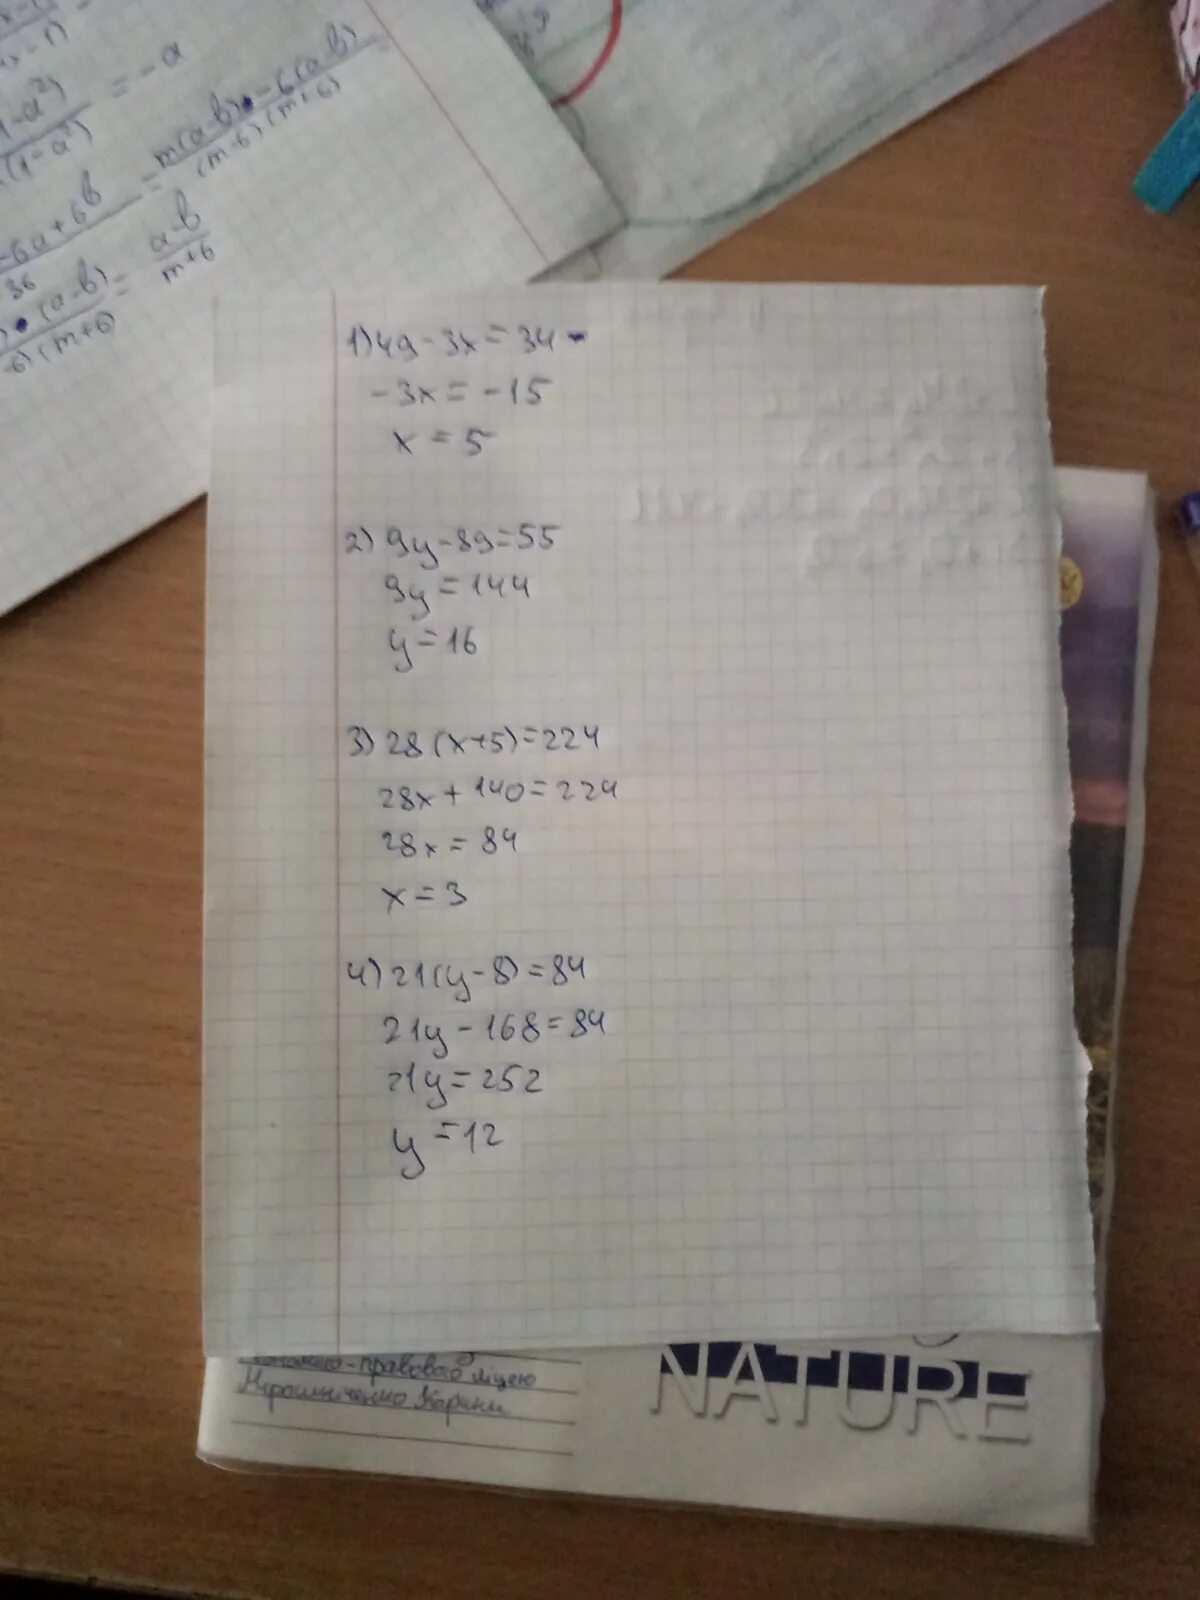 (1-a²)
= -a
-6a+6b
-36
= m(a-b) • -6(a-b)
(m-6)(m+6)
=
• (a-b)
-6)(m+6)
= a-b
m+6
1) 49-3x=34
-3x=-15
x=5
2) 9y-89=55
9y=144
y=16
3) 28(x+5)=224
28x+140=224
28x=84
x=3
4) 21(y-8)=84
21y-168=84
21y=252
y=12
-правового ліцею
Мірошниченко Карини
NATURE